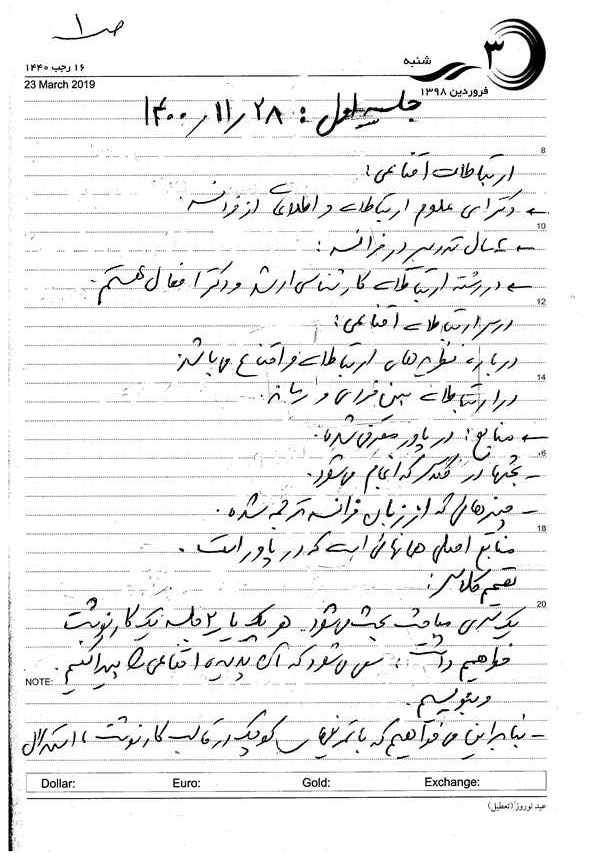 ص ۱
۳ شنبه
۱۶ رجب ۱۴۴۰
23 March 2019
فروردین ۱۳۹۸
جلسه اول: ۲۸ / ۱۱ / ۱۴۰۰
8
ارتباطات اقناعی:
← دکترای علوم ارتباطات و اطلاعات از فرانسه.
10
سال تدریس در فرانسه:
← در رشته ارتباطات کارشناسی ارشد و دکترا فعال هستم.
12
درس ارتباطات اقناعی:
درباره نظریه‌های ارتباطات و اقناع می‌باشد.
14
در ارتباطات بین فردی و رسانه.
← منابع: در پاور معرفی شده.
16
- بحثها در که انجام می‌شود.
- چیزهایی که از زبان فرانسه ترجمه شده.
18
منابع اصلی همانهائی است که در پاور است.
تقسیم کلاس:
20
یک سری مباحث بحث می‌شود. هر یک یا ۲ جلسه یک کارنوشت
خواهیم داشت. سعی می‌شود که پدیده اقناعی را پیدا کنیم.
NOTE:
و بنویسیم.
- بنابراین می‌خواهیم که با تمرینهای کوچک در قالب کارنوشت، استدلال
Dollar: Euro: Gold: Exchange:
عید نوروز (تعطیل)